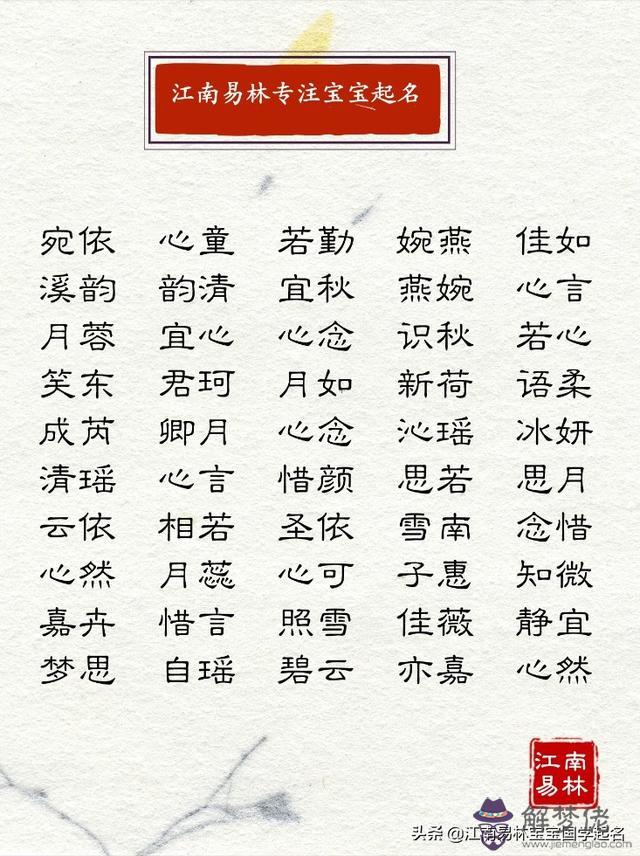 江南易林专注宝宝起名
宛依 心童 若勤 婉燕 佳如
溪韵 韵清 宜秋 燕婉 心言
月蓉 宜心 心念 识秋 若心
笑东 君珂 月如 新荷 语柔
成芮 卿月 心念 沁瑶 冰妍
清瑶 心言 惜颜 思若 思月
云依 相若 圣依 雪南 念惜
心然 月蕊 心可 子惠 知微
嘉卉 惜言 照雪 佳薇 静宜
梦思 自瑶 碧云 亦嘉 心然
江南
易林
解梦佬
头条 @江南易林宝宝国学起名
www.jiemenglao.com